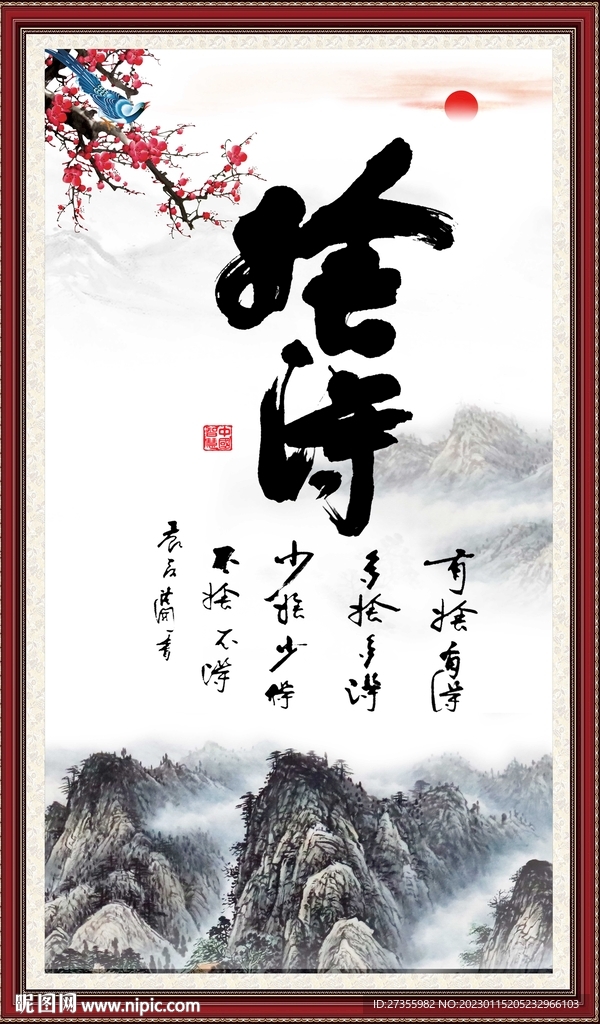 捨得
有捨有得
多捨多得
少捨少得
不捨不得
中國
智慧
昵图网 www.nipic.com
ID:27355982 NO:20230115205232966103